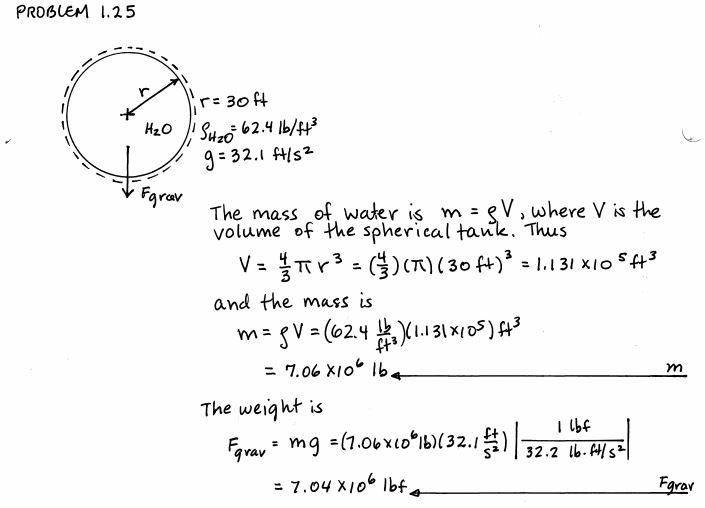 PROBLEM 1.25
r
r = 30 ft
H2O
ρH2O = 62.4 lb/ft³
g = 32.1 ft/s²
Fgrav
The mass of water is m = ρV, where V is the
volume of the spherical tank. Thus
V = 4/3 π r³ = (4/3)(π)(30 ft)³ = 1.131 x10⁵ ft³
and the mass is
m = ρV = (62.4 lb/ft³)(1.131x10⁵) ft³
= 7.06 x10⁶ lb m
The weight is
Fgrav = mg = (7.06x10⁶ lb)(32.1 ft/s²) | 1 lbf / 32.2 lb·ft/s² |
= 7.04 x10⁶ lbf Fgrav